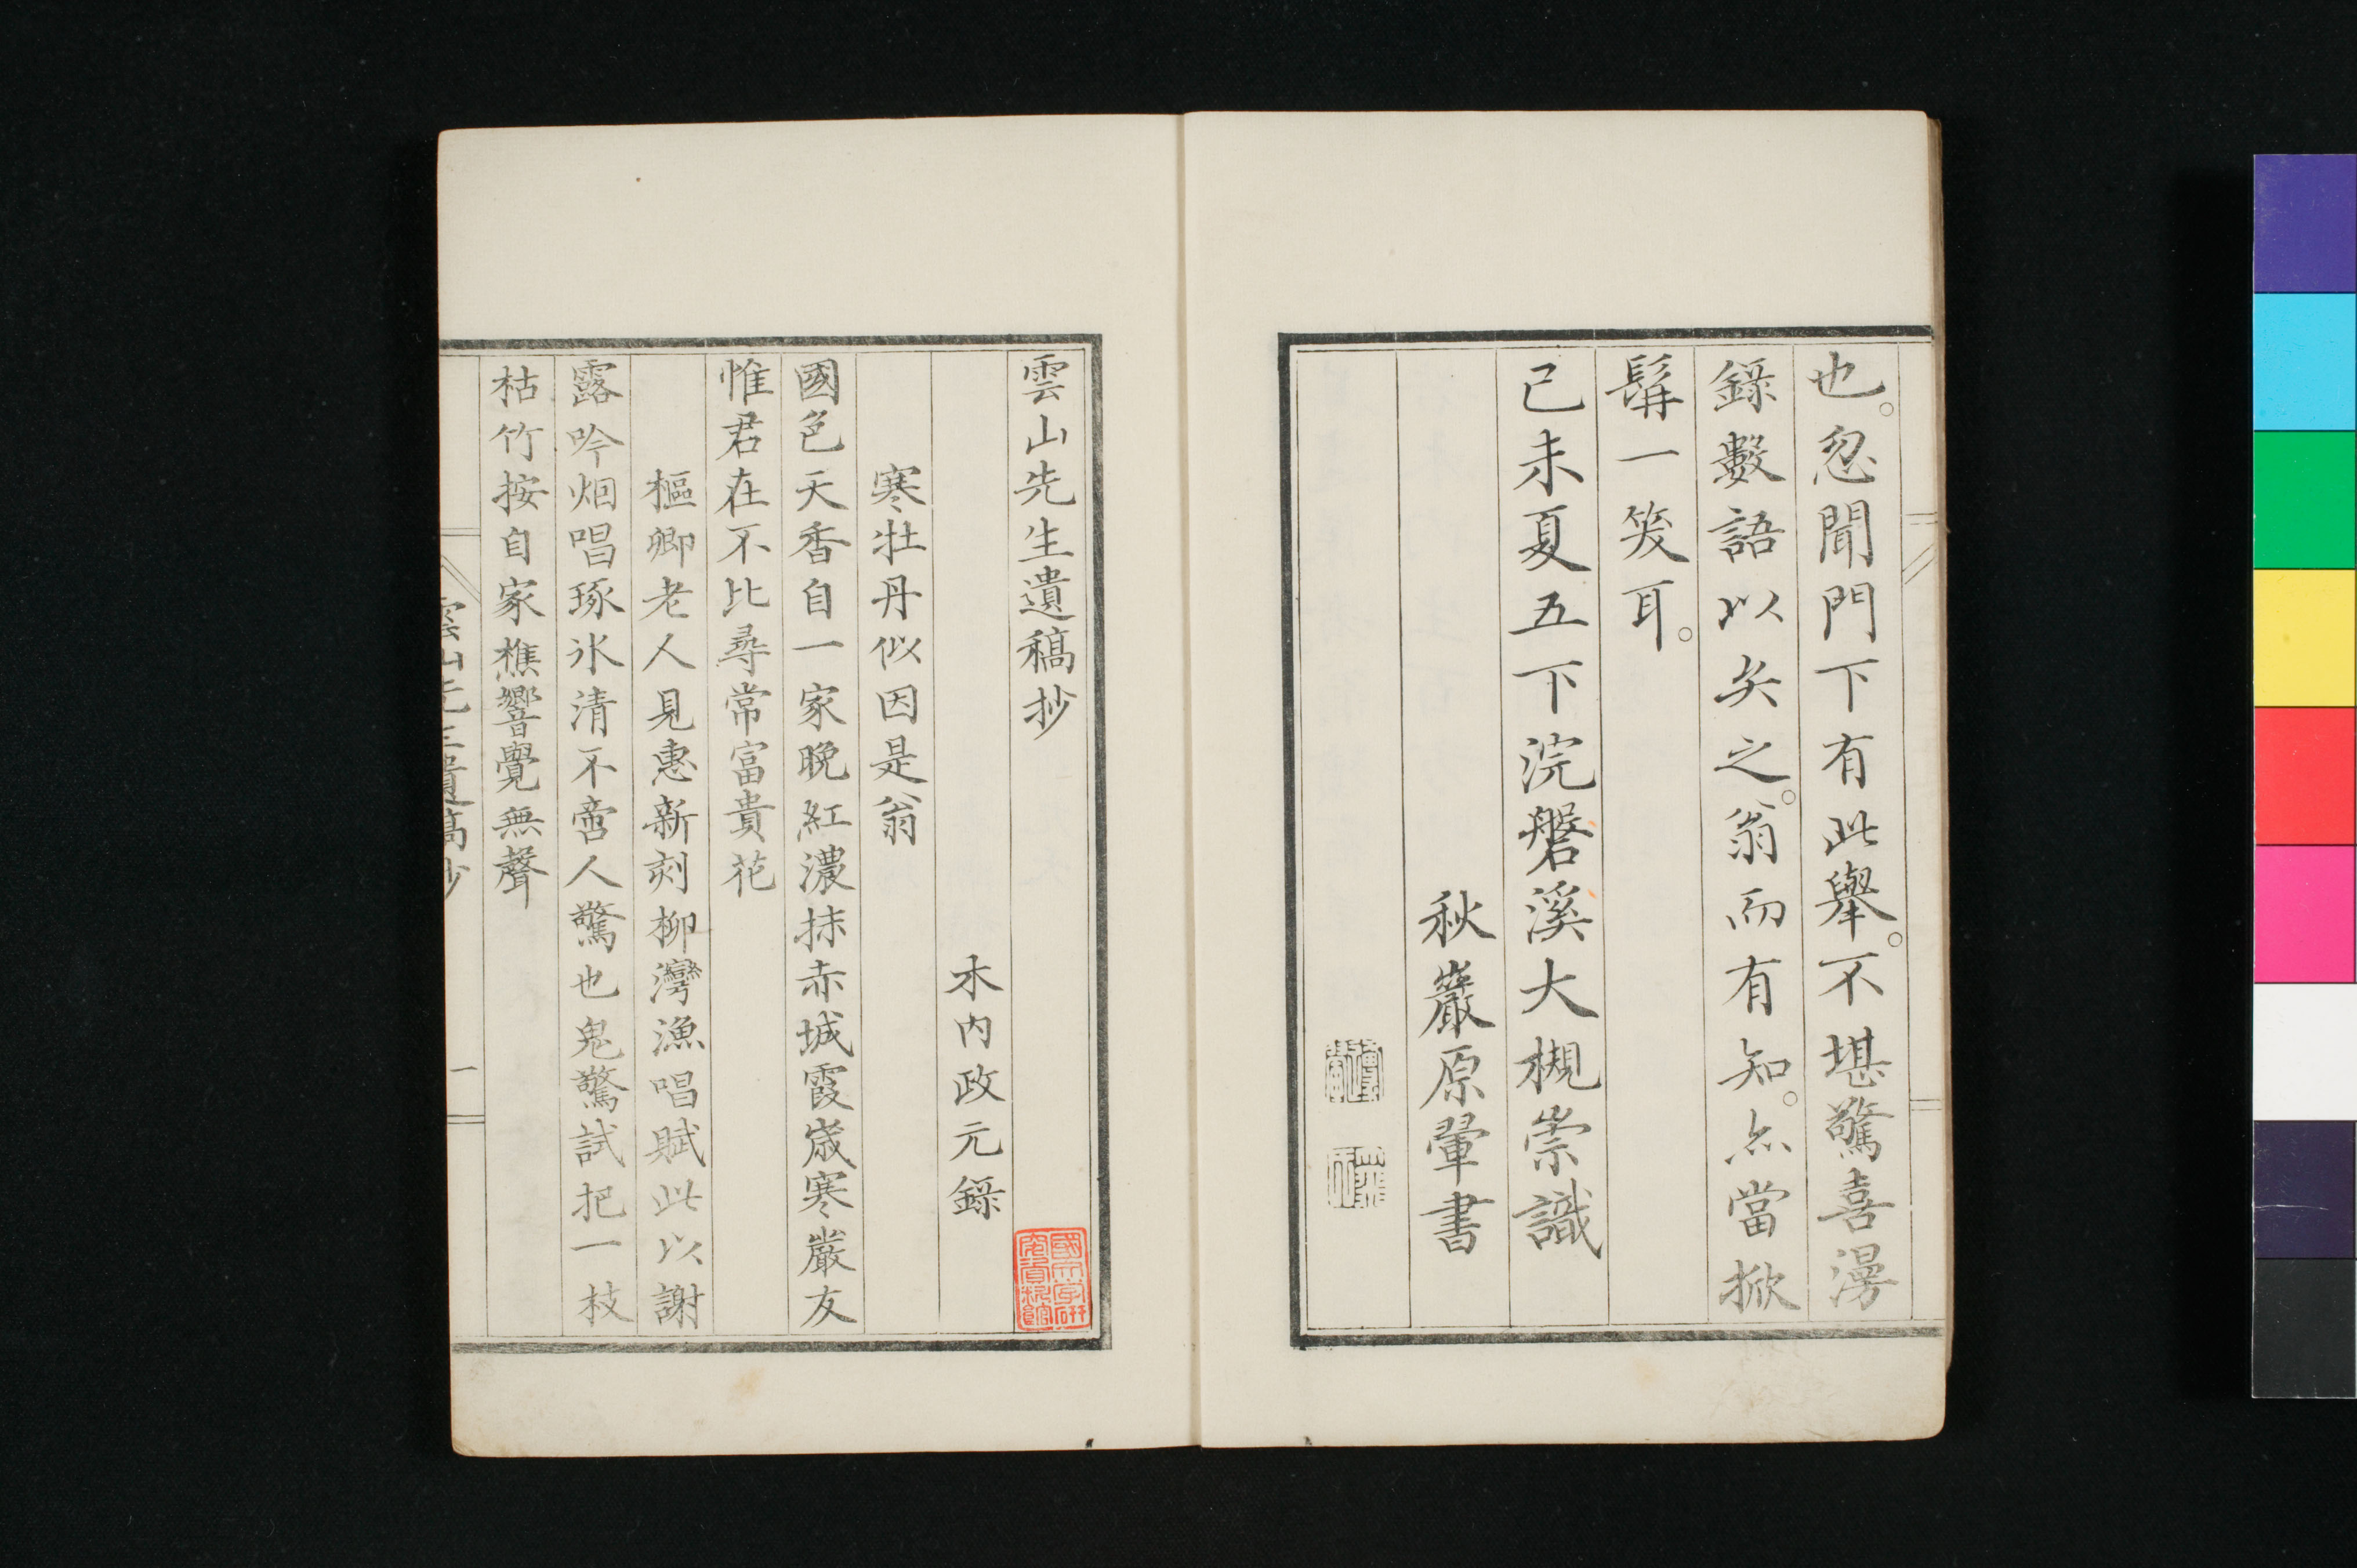 也。忽聞門下有此舉。不堪驚喜漫
錄數語以矢之。翁而有知。亦當掀
髯一笑耳。
己未夏五下浣磐溪大槻崇識
秋巖原翬書
雲山先生遺稿抄
木内政元錄
寒牡丹似因是翁
國色天香自一家晩紅濃抹赤城霞歲寒嚴友
惟君在不比尋常富貴花
樞卿老人見惠新刻柳灣漁唱賦此以謝
露吟烟唱琢氷清不啻人驚也鬼驚試把一枝
枯竹按自家樵響覺無聲
雲山先生遺稿抄
一